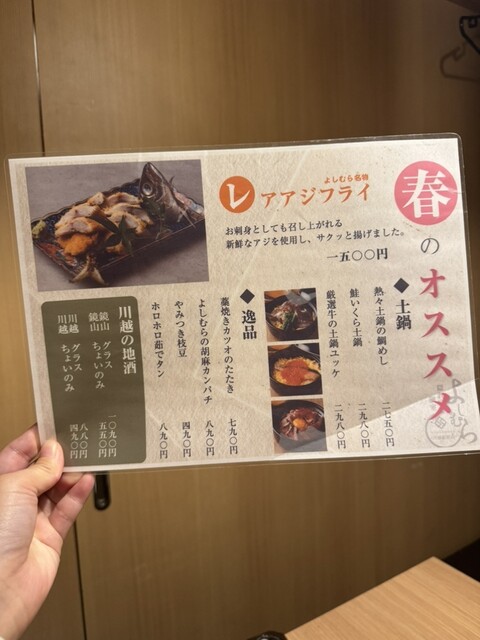 春のオススメ
よしむら名物
レアアジフライ
お刺身としても召し上がれる
新鮮なアジを使用し、サクッと揚げました。
一五〇〇円
◆土鍋
熱々土鍋の鯛めし 二七五〇円
鮭いくら土鍋 二九八〇円
厳選牛の土鍋ユッケ 二九八〇円
◆逸品
藁焼きカツオのたたき 七九〇円
よしむらの胡麻カンパチ 八九〇円
やみつき枝豆 四九〇円
ホロホロ茹でタン 八九〇円
川越の地酒
鏡山 グラス 一〇九〇円
鏡山 ちょいのみ 五五〇円
川越 グラス 八八〇円
川越 ちょいのみ 四九〇円
よしむら